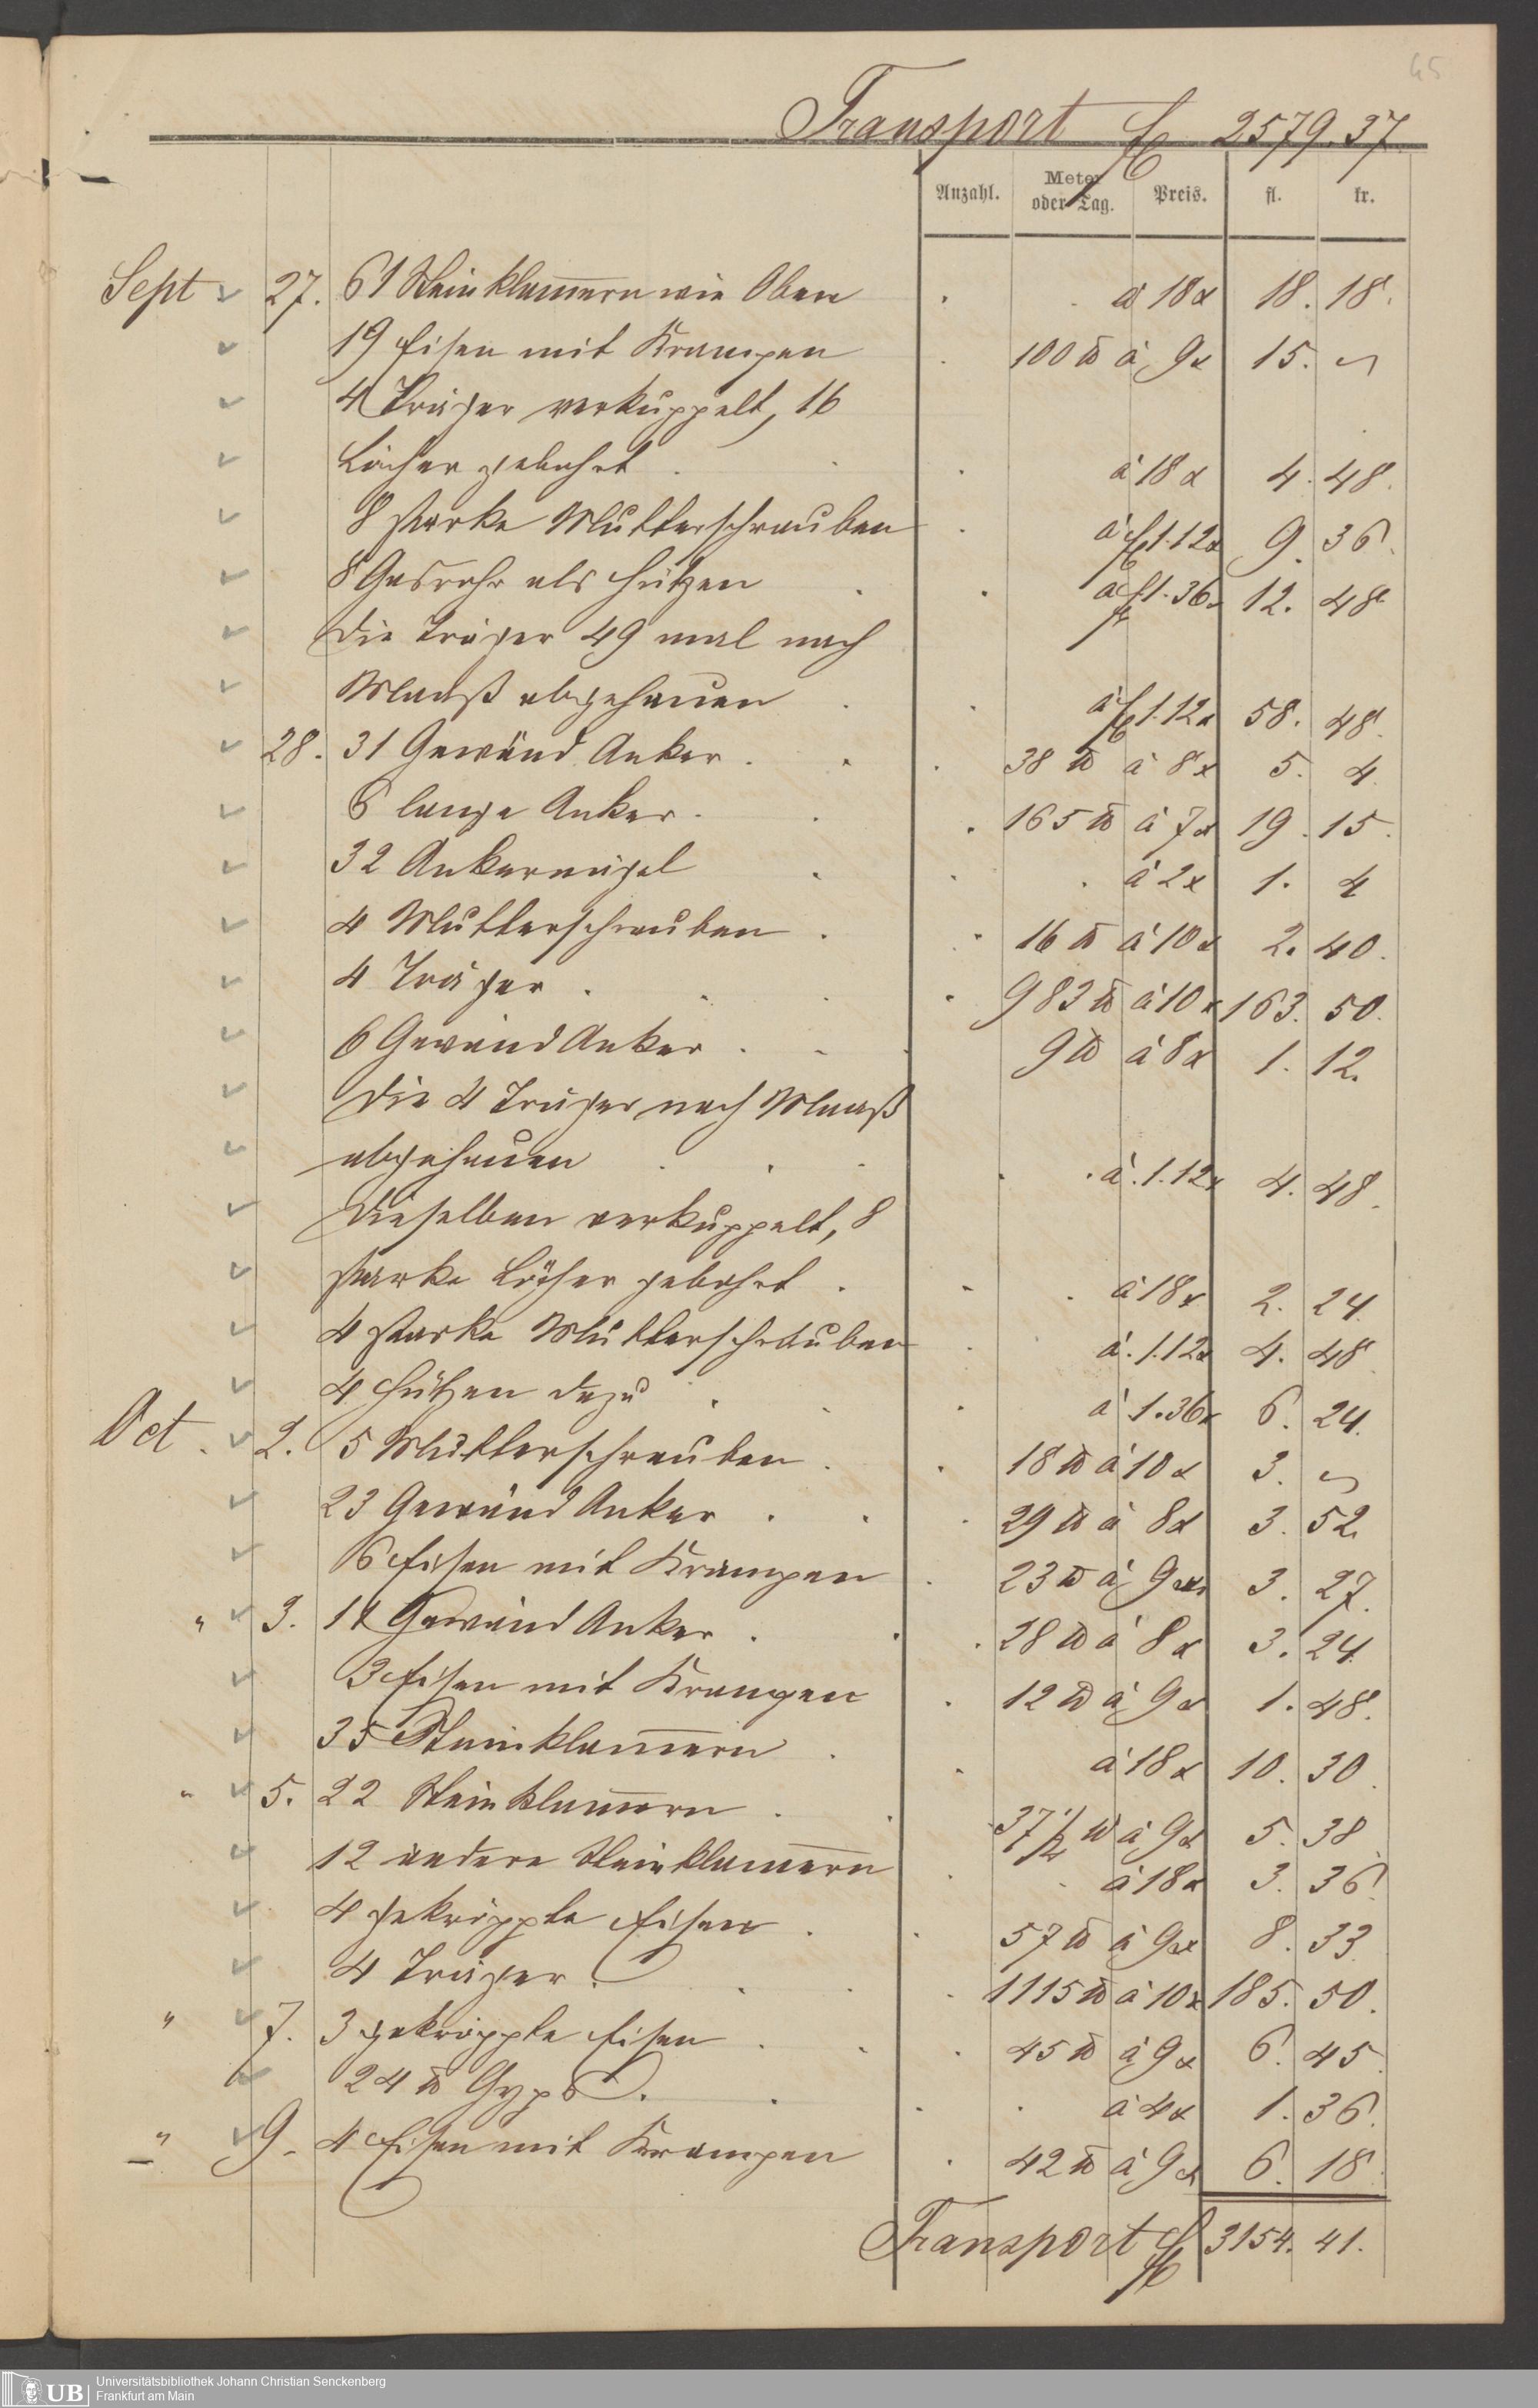 65
Transport fl 2579.37.
Anzahl. Meter oder Tag. Preis. fl. kr.
Sept 27. 61 Steinklam̅ern wie Oben . . à 18x 18. 18.
19 Eisen mit Krampen . 100 ℔ à 9x 15. ~
4 Träger verkuppelt, 16
Löcher gebohrt . . . à 18x 4. 48.
8 starke Mutterschrauben . à fl 1.12x 9. 36.
8 Gasrohr als Hülzen . . à fl 1.36x 12. 48
Die Träger 49 mal nach
Maaß abgehauen . . à fl 1.12x 58. 48.
28. 31 Gewänd Anker . . . 38 ℔ à 8x 5. 4.
6 lange Anker . . . 165 ℔ à 7x 19. 15.
32 Ankernägel . . . à 2x 1. 4
4 Mutterschrauben . . 16 ℔ à 10x 2. 40.
4 Träger . . . . 983 ℔ à 10x 163. 50.
6 Gewänd Anker . . . 9 ℔ à 8x 1. 12.
Die 4 Träger nach Maaß
abgehauen . . . . . à 1.12x 4. 48.
Dieselben verkuppelt, 8
starke Löcher gebohrt . . . à 18x 2. 24.
4 starke Mutterschrauben . à 1.12x 4. 48
4 Hülzen dazu . . . à 1.36x 6. 24.
Oct. 2. 5 Mutterschrauben . . 18 ℔ à 10x 3. ~
23 Gewänd Anker . . . 29 ℔ à 8x 3. 52.
6 Eisen mit Krampen . 23 ℔ à 9x 3. 27.
" 3. 14 Gewänd Anker . . . 28 ℔ à 8x 3. 24.
3 Eisen mit Krampen . 12 ℔ à 9x 1. 48.
35 Steinklam̅ern . . à 18x 10. 30.
" 5. 22 Steinklam̅ern . . 37 1/2 ℔ à 9x 5. 38
12 andere Steinklam̅ern . . à 18x 3. 36.
4 gekröppte Eisen . . 57 ℔ à 9x 8. 33
4 Träger . . . . 1115 ℔ à 10x 185. 50.
" 7. 3 gekröppte Eisen . . . 45 ℔ à 9x 6. 45.
24 ℔ Gyps . . . . à 4x 1. 36.
" 9. 4 Eisen mit Krampen . 42 ℔ à 9x 6. 18.
Transport fl 3154. 41.
UB Universitätsbibliothek Johann Christian Senckenberg
Frankfurt am Main